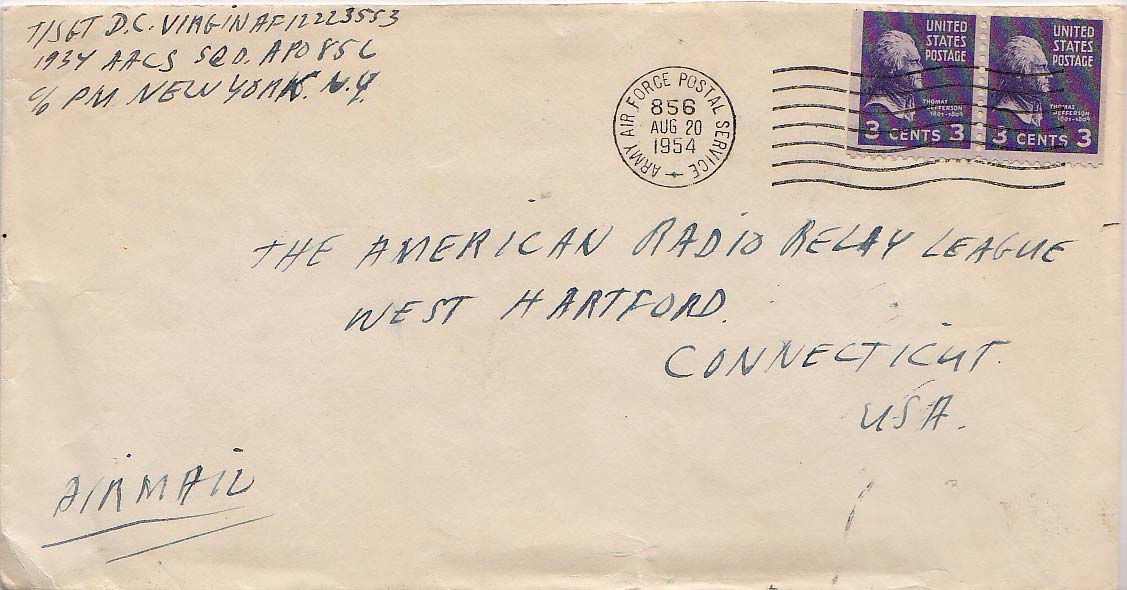 T/SGT D.C. VIRGIN AF12223553
1934 AACS SQD. APO 856
c/o PM. NEW YORK. N.Y.
ARMY AIR FORCE POSTAL SERVICE
856
AUG 20
1954
UNITED
STATES
POSTAGE
THOMAS
JEFFERSON
1801-1809
3 CENTS 3
UNITED
STATES
POSTAGE
THOMAS
JEFFERSON
1801-1809
3 CENTS 3
THE AMERICAN RADIO RELAY LEAGUE
WEST HARTFORD.
CONNECTICUT.
USA.
AIRMAIL